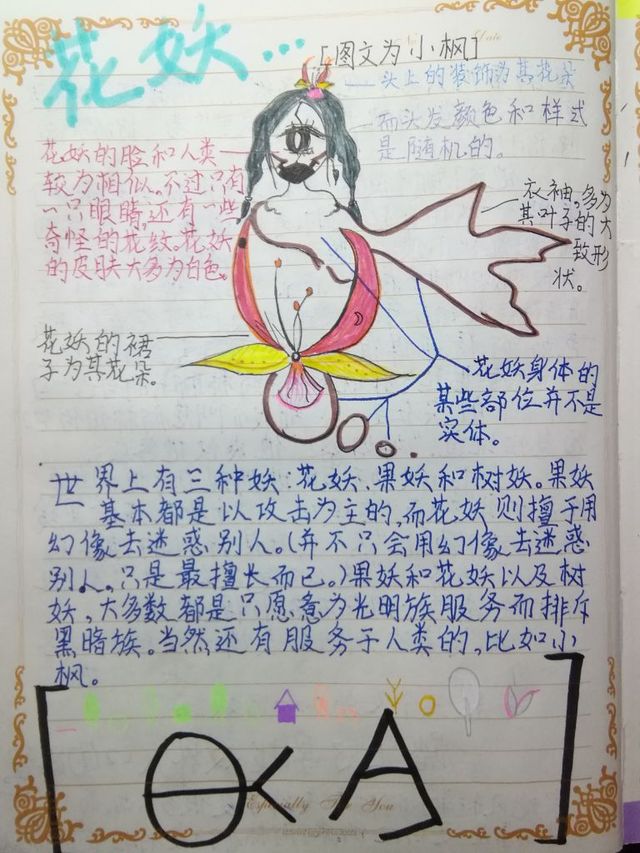 花妖...
[图文为小枫]
头上的装饰为其花朵
而头发颜色和样式
是随机的。
花妖的脸和人类
较为相似。不过只有
一只眼睛,还有一些
奇怪的花纹。花妖
的皮肤大多为白色。
衣袖,多为
其叶子的大
致形
状。
花妖的裙
子为其花朵。
花妖身体的
某些部位并不是
实体。
世界上有三种妖:花妖、果妖和树妖。果妖
基本都是以攻击为主的,而花妖则擅于用
幻像去迷惑别人。(并不只会用幻像去迷惑
别人,只是最擅长而已。)果妖和花妖以及树
妖,大多数都是只愿意为光明族服务而排斥
黑暗族。当然还有服务于人类的,比如小
枫。
Especially For You